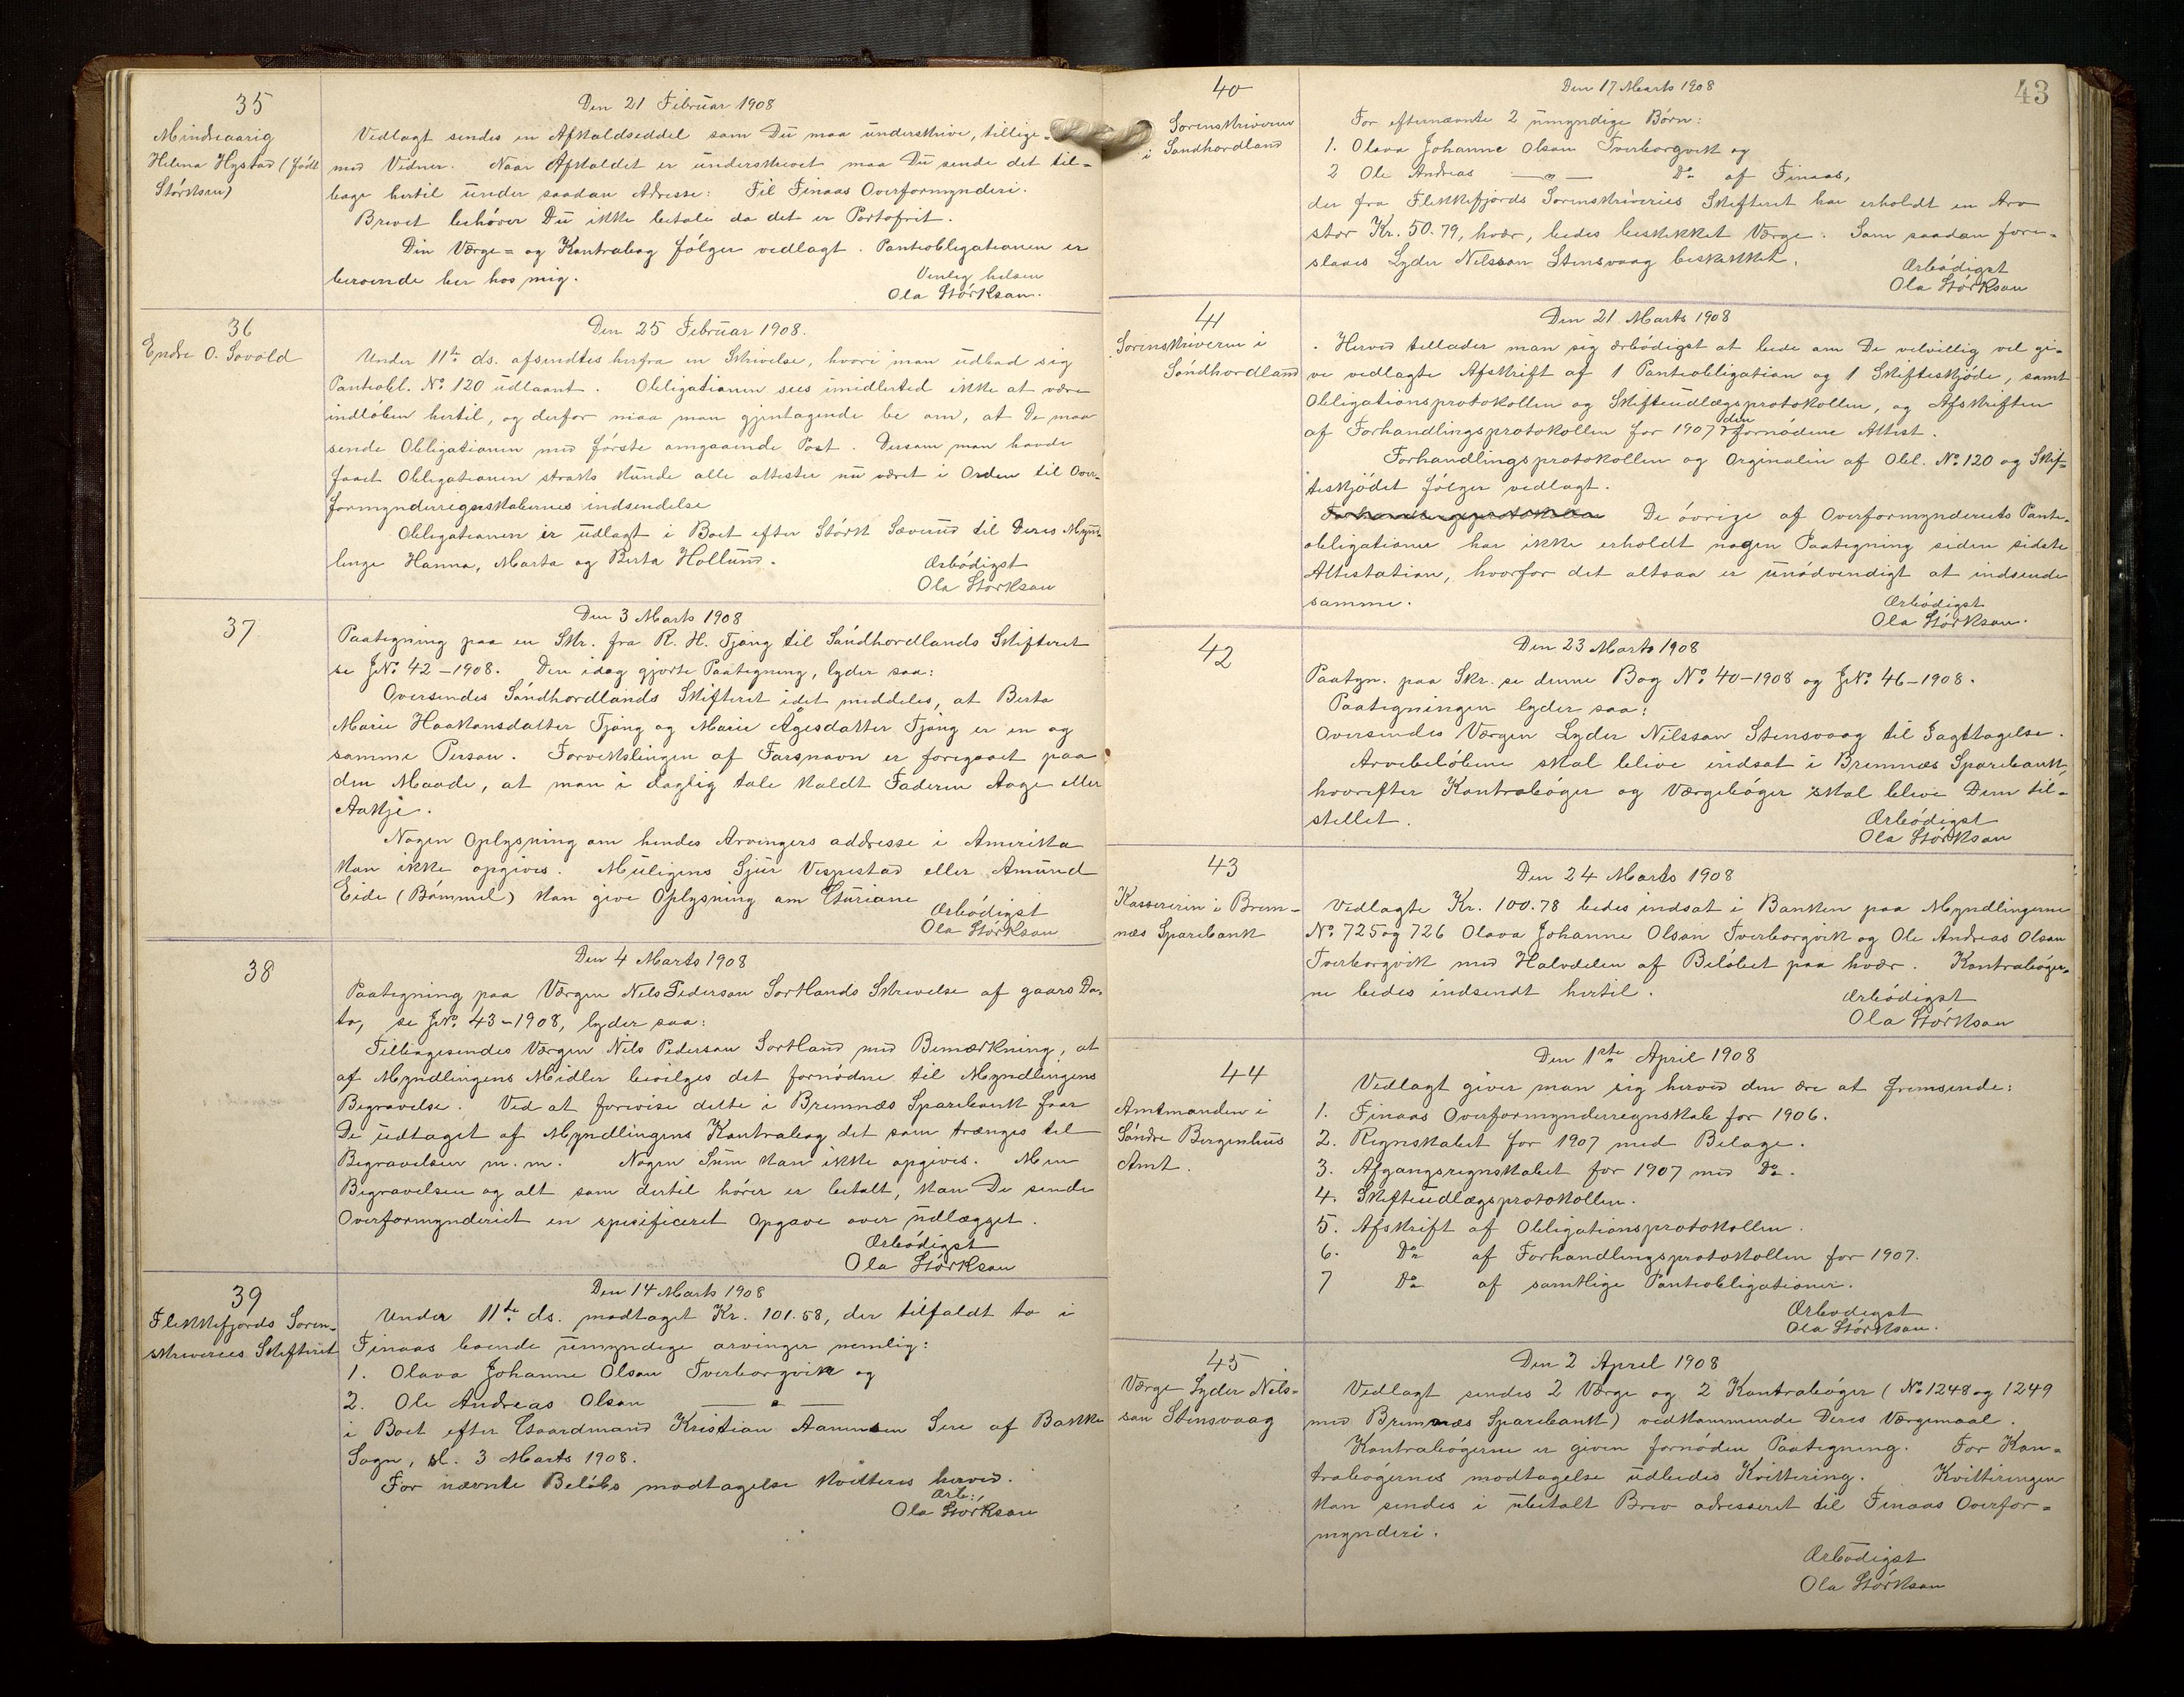 35
Mindreaarig
Helena Hystad (født
Størksen)
Den 21 Februar 1908
Vedlagt sendes en Afkaldseddel som Du maa underskrive, tillige-
med Vidner. Naar Afkaldet er underskrevet maa Du sende det til-
bage hertil under saadan Adresse: Til Finaas Overformynderi.
Brevet behøver Du ikke betale da det er Portofrit.
Din Værge- og Kontrabog følger vedlagt. Panteobligationen er
beroende her hos mig.
Venlig helsen
Ola Størkson.
36
Endre O. Sovold
Den 25 Februar 1908.
Under 11te ds. afsendtes herfra en Skrivelse, hvori man udbad sig
Panteobl. No 120 udlaant. Obligationen sees imidlertid ikke at være
indløben hertil, og derfor maa man gjentagende be om, at De maa
sende Obligationen med første omgaaende Post. Dersom man havde
faaet Obligationen straks kunde alle attester nu været i Orden til Over-
formynderregnskabernes indsendelse
Obligationen er udlagt i Boet efter Størk Sæverud til Deres Mynd-
linge Hanna, Marta og Berta Hollund.
Ærbødigst
Ola Størkson
37
Den 3 Marts 1908
Paategning paa en Skr. fra R. H. Tjong til Søndhordlands Skifteret
se JNo. 42-1908. Den idag gjorte Paategning, lyder saa:
Oversendes Søndhordlands Skifteret idet meddeles, at Berta
Marie Haakonsdatter Tjong og Marie Ågesdatter Tjong er en og
samme Person. Forvekslingen af Farsnavn er foregaaet paa
den Maade, at man i daglig tale kaldt Faderen Aage eller
Aakje.
Nogen Oplysning om hendes Arvingers addresse i Amerika
kan ikke opgives. Muligens Sjur Vespestad eller Amund
Eide (Bømmel) kan give Oplysning om Guriane
Ærbødigst
Ola Størkson
38
Den 4 Marts 1908
Paategning paa Værgen Nels Pederson Sortlands Skrivelse af gaars Da-
to, se JNo. 43-1908, lyder saa:
Tilbagesendes Værgen Nils Pederson Sortland med Bemærkning, at
af Myndlingens Midler bevilges det fornødne til Myndlingens
Begravelse. Ved at forevise dette i Bremnæs Sparebank faar
De udtaget af Myndlingens Kontrabog det som trænges til
Begravelsen m. m. Nogen Sum kan ikke opgives. Men
Begravelsen og alt som dertil hører er betalt, kan De sende
Overformynderiet en spesificeret Opgave over udlægget.
Ærbødigst
Ola Størkson
39
Flekkefjords Soren-
skriveries Skifteret
Den 14 Marts 1908
Under 11te ds. modtaget Kr. 101.58, der tilfaldt to i
Finaas boende umyndige arvinger nemlig:
1. Olava Johanne Olson Tverborgvik og
2. Ole Andreas Olson — " —
i Boet efter Gaardmand Kristian Aanensen Sire af Bakke
Sogn, d. 3 Marts 1908.
For nævnte Beløbs modtagelse kvitteres herved.
Ærb:,
Ola Størkson
43
40
Sorenskriveren
i Søndhordland
Den 17 Marts 1908
For efternævnte 2 umyndige Børn:
1. Olava Johanne Olson Tverborgvik og
2 Ole Andreas — " — Do af Finaas,
der fra Flekkefjords Sorenskriveries Skifteret har erholdt en Arv
stor Kr. 50.79, hver, bedes beskikket Værge. Som saadan fore-
slaaes Lyder Nilsson Stensvaag beskikket.
Ærbødigst
Ola Størkson
41
Sorenskriveren i
Søndhordland
Den 21 Marts 1908
Herved tillader man sig ærbødigst at bede om De velvillig vil gi-
ve vedlagte Afskrift af 1 Panteobligation og 1 Skifteskjøde, samt
Obligationsprotokollen og Skifteudlægsprotokollen, og Afskriften
af Forhandlingsprotokollen for 1907 den fornødne Attest.
Forhandlingsprotokollen og Orginalen af Obl. No. 120 og Skif-
teskjødet følger vedlagt.
Forhandlingsprotokollen De øvrige af Overformynderiets Pante-
obligationer har ikke erholdt nogen Paategning siden sidste
Attestation, hvorfor det altsaa er unødvendigt at indsende
samme.
Ærbødigst
Ola Størkson.
42
Den 23 Marts 1908
Paategn. paa Skr. se denne Bog No. 40-1908 og JNo. 46-1908.
Paategningen lyder saa:
Oversendes Værgen Lyder Nilsson Stensvaag til Iagttagelse.
Arvebeløbene skal blive indsat i Bremnæs Sparebank,
hvorefter Kontrabøger og Værgebøger skal blive Dem til-
stellet.
Ærbødigst
Ola Størkson
43
Kassereren i Brem-
næs Sparebank
Den 24 Marts 1908
Vedlagte Kr. 100.78 bedes indsat i Banken paa Myndlingerne
No. 725 og 726 Olava Johanne Olson Tverborgvik og Ole Andreas Olson
Tverborgvik med Halvdelen af Beløbet paa hver. Kontrabøger-
ne bedes indsendt hertil.
Ærbødigst
Ola Størkson
44
Amtmanden i
Søndre Bergenhus
Amt.
Den 1ste April 1908
Vedlagt giver man sig herved den ære at fremsende:
1. Finaas Overformynderregnskab for 1906.
2. Regnskabet for 1907 med Bilage.
3. Afgangsregnskabet for 1907 med Do.
4. Skifteudlægsprotokollen.
5. Afskrift af Obligationsprotokollen.
6. Do af Forhandlingsprotokollen for 1907.
7 Do af samtlige Panteobligationer.
Ærbødigst
Ola Størkson.
45
Værge Lyder Nils-
son Stensvaag
Den 2 April 1908
Vedlagt sendes 2 Værge og 2 Kontrabøger (No. 1248 og 1249
med Bremnæs Sparebank) vedkommende Deres Værgemaal.
Kontrabøgerne er given fornøden Paategning. For Kon-
trabøgernes modtagelse udbedes Kvittering. Kvitteringen
kan sendes i ubetalt Brev adresseret til Finaas Overfor-
mynderi.
Ærbødigst
Ola Størkson